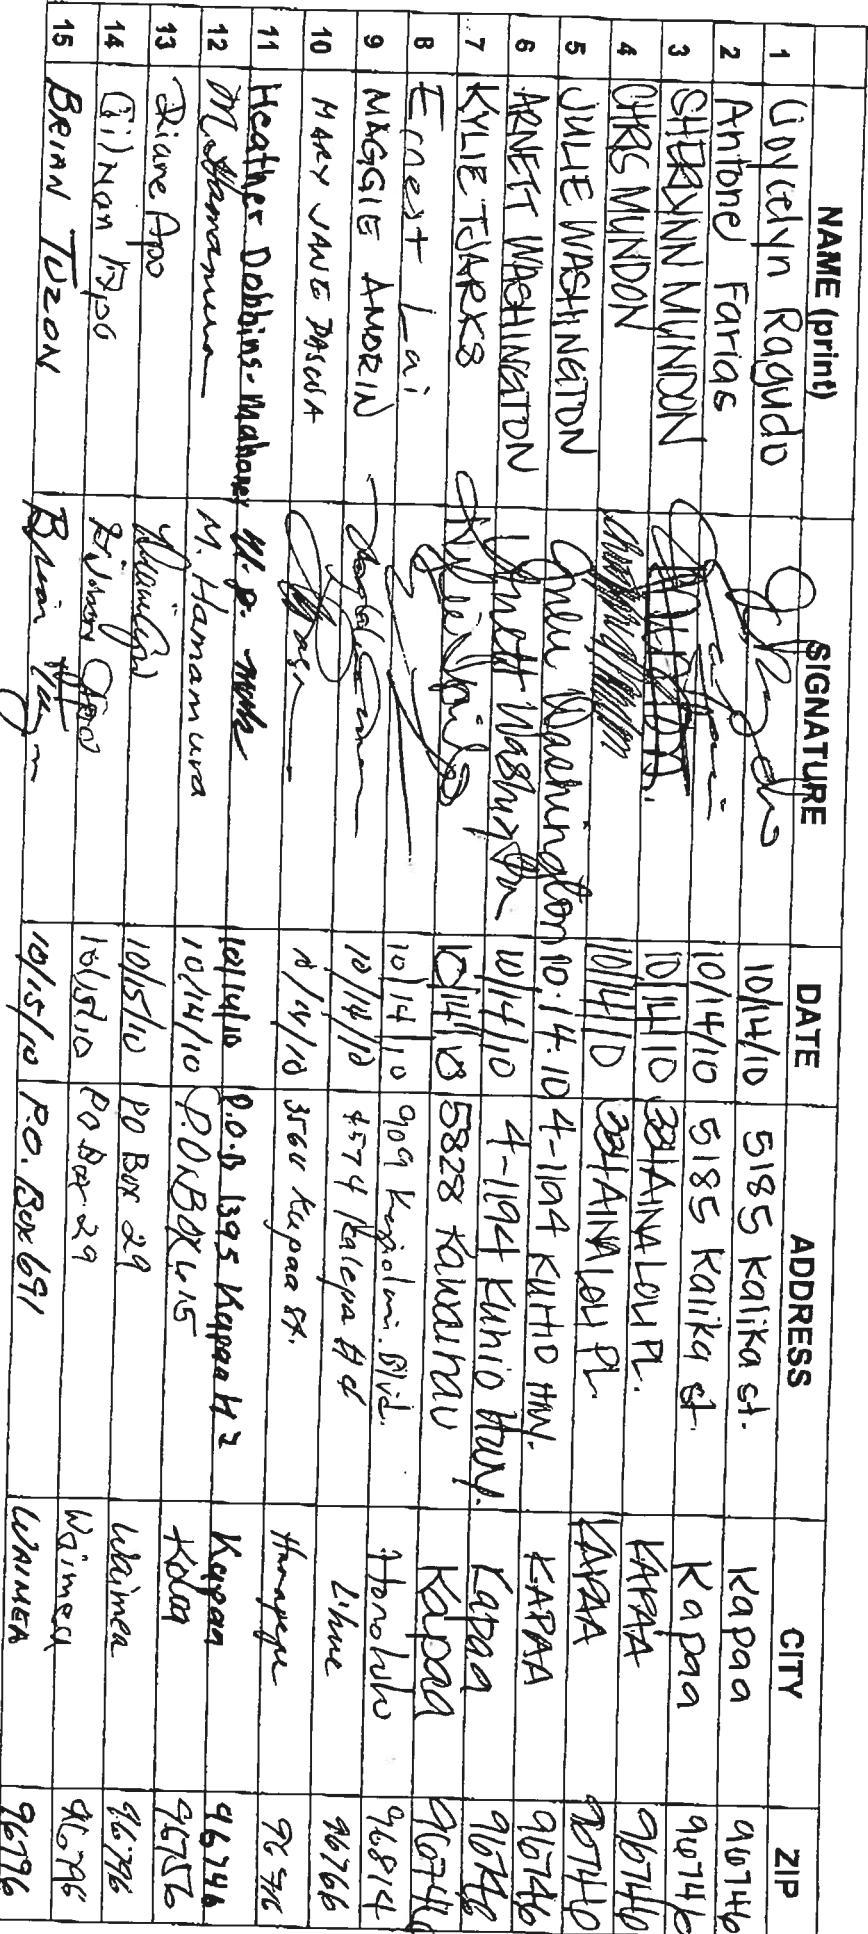 NAME (print) SIGNATURE DATE ADDRESS CITY ZIP
1 Joycelyn Ragudo 10/14/10 5185 Kalika st. Kapaa 96746
2 Antone Farias 10/14/10 5185 Kalika st. Kapaa 96746
3 SHERLYNN MUNDON 10/14/10 334 AINA LOLI PL. KAPAA 96746
4 CHRIS MUNDON 10/14/10 334 AINA LOLI PL. KAPAA 96746
5 JULIE WASHINGTON Julie Washington 10.14.10 4-1194 KUHIO HWY. KAPAA 96746
6 ARNETT WASHINGTON Arnett Washington 10/14/10 4-1194 Kuhio Hwy. Kapaa 96746
7 KYLIE TJARKS 10/14/10 5828 Kawaihau Kapaa 96746
8 Ernest Lai 10/14/10 909 Kapiolani Blvd. Honolulu 96814
9 MAGGIE AMORIN 10/14/10 4574 Kalepa Lihue 96766
10 MARY JANE PASUSA 10/14/10 3564 Kupaa St. Hanapepe
11 Heather Dobbins-Mahoney H. D. 10/14/10 P.O.B 1395 Kapaa HI Kapaa 96746
12 M. Hamamura M. Hamamura 10/14/10 P.O. BOX 615 Koloa 96756
13 Diane Apo 10/15/10 PO Box 29 Waimea 96796
14 Gilman Apo Gilman Apo 10/15/10 PO Box 29 Waimea 96796
15 BRIAN TUZON Brian 10/15/10 P.O. Box 691 WAIMEA 96796